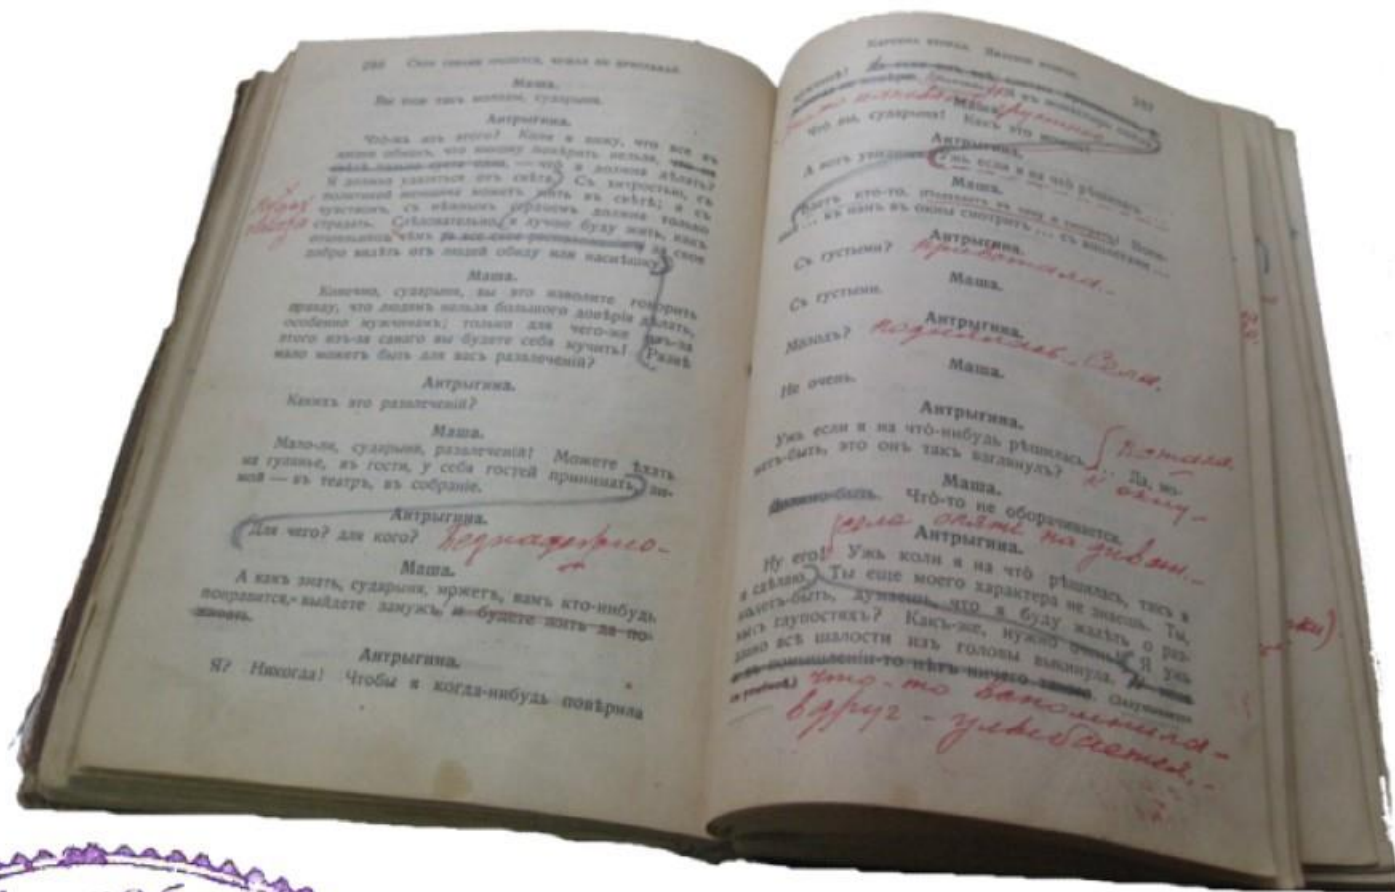 286 Свои собаки грызутся, чужая не приставай.
Маша.
Вы еще такъ молоды, сударыня.
Антрыгина.
Что-жъ изъ этого? Коли я вижу, что все въ
людяхъ обманъ, что никому повѣрить нельзя,
— что я должна дѣлать?
Я должна удалиться отъ свѣта. Съ хитростью, съ
политикой женщина можетъ жить въ свѣтѣ; а съ
чувствомъ, съ нѣжнымъ сердцемъ должна только
страдать. Слѣдовательно, я лучше буду жить, какъ
отшельница, чѣмъ за свое
добро видѣть отъ людей обиду или насмѣшку.
Маша.
Конечно, сударыня, вы это изволите говорить
правду, что людямъ нельзя большого довѣрія дѣлать,
особенно мужчинамъ; только для чего-же изъ-за
этого изъ-за самаго вы будете себя мучить! Развѣ
мало можетъ быть для васъ развлеченій?
Антрыгина.
Какихъ это развлеченій?
Маша.
Мало-ли, сударыня, развлеченій! Можете ѣхать
на гулянье, въ гости, у себя гостей принимать, зи-
мой — въ театръ, въ собраніе.
Антрыгина.
Для чего? для кого? Безнадежно-
Маша.
А какъ знать, сударыня, можетъ, вамъ кто-нибудь
понравится, - выйдете замужъ, и будете жить да по-
живать.
Антрыгина.
Я? Никогда! Чтобы я когда-нибудь повѣрила
Картина вторая. Явленіе 287
мужчинѣ!
Маша.
Что вы, сударыня! Какъ это можно!
Антрыгина.
А вотъ увидишь. Ужъ если я на что̀ рѣшилась ...
Маша.
Идетъ кто-то,
... къ намъ въ окны смотритъ ... съ волосами ...
Антрыгина.
Съ густыми? привстала.-
Маша.
Съ густыми.
Антрыгина.
Молодъ? поднялась. Соля.
Маша.
Не очень.
Антрыгина.
Ужъ если я на что̀-нибудь рѣшилась ... Да, мо- Встала
жетъ-быть, это онъ такъ взглянулъ? к окну-
Маша.
Должно-быть. Что̀-то не оборачивается.
села опять на диван.-
Антрыгина.
Ну его! Ужъ коли я на что̀ рѣшилась, такъ я
и сдѣлаю. Ты еще моего характера не знаешь. Ты,
можетъ-быть, думаешь, что я буду жалѣть о раз-
ныхъ глупостяхъ? Какъ-же, нужно очень! Я ужъ
давно всѣ шалости изъ головы выкинула. У меня
въ помышленіи-то нѣтъ ничего такого.
что-то вспомнила-
вдруг - улыбается.-